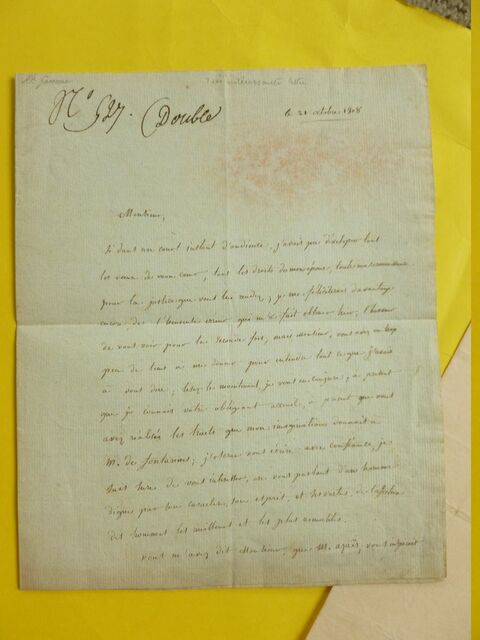 Mde Gerono
Très intéressante lettre
No 527. Double
le 21 octobre 1808
Monsieur,
Si dans un court instant d'audience, j'avais pu développer tout
les vœux de mon cœur, tous les droits de mon époux, toute ma reconnaissance
pour la justice que vous lui rendez, je me féliciterais davantage
encore de l' erreur qui m'a fait obtenir hier, l'honneur
de vous voir pour la seconde fois; mais Monsieur, vous avez eu trop
peu de tems à me donner pour entendre tout ce que j'avais
à vous dire; lisez le maintenant, je vous en conjure; à présent
que je connais votre obligeant accueil, à présent que vous
avez réalisé les traits que mon imagination donnait à
M. de fontanes, j'oserai vous écrire avec confiance, je
suis sure de vous intéresser, en vous parlant d'un homme
digne par son caractère, son esprit, et ses vertus, de l'affection
des hommes les meilleurs et les plus aimables.
vous m'avez dit Monsieur, que M. agnès, vous